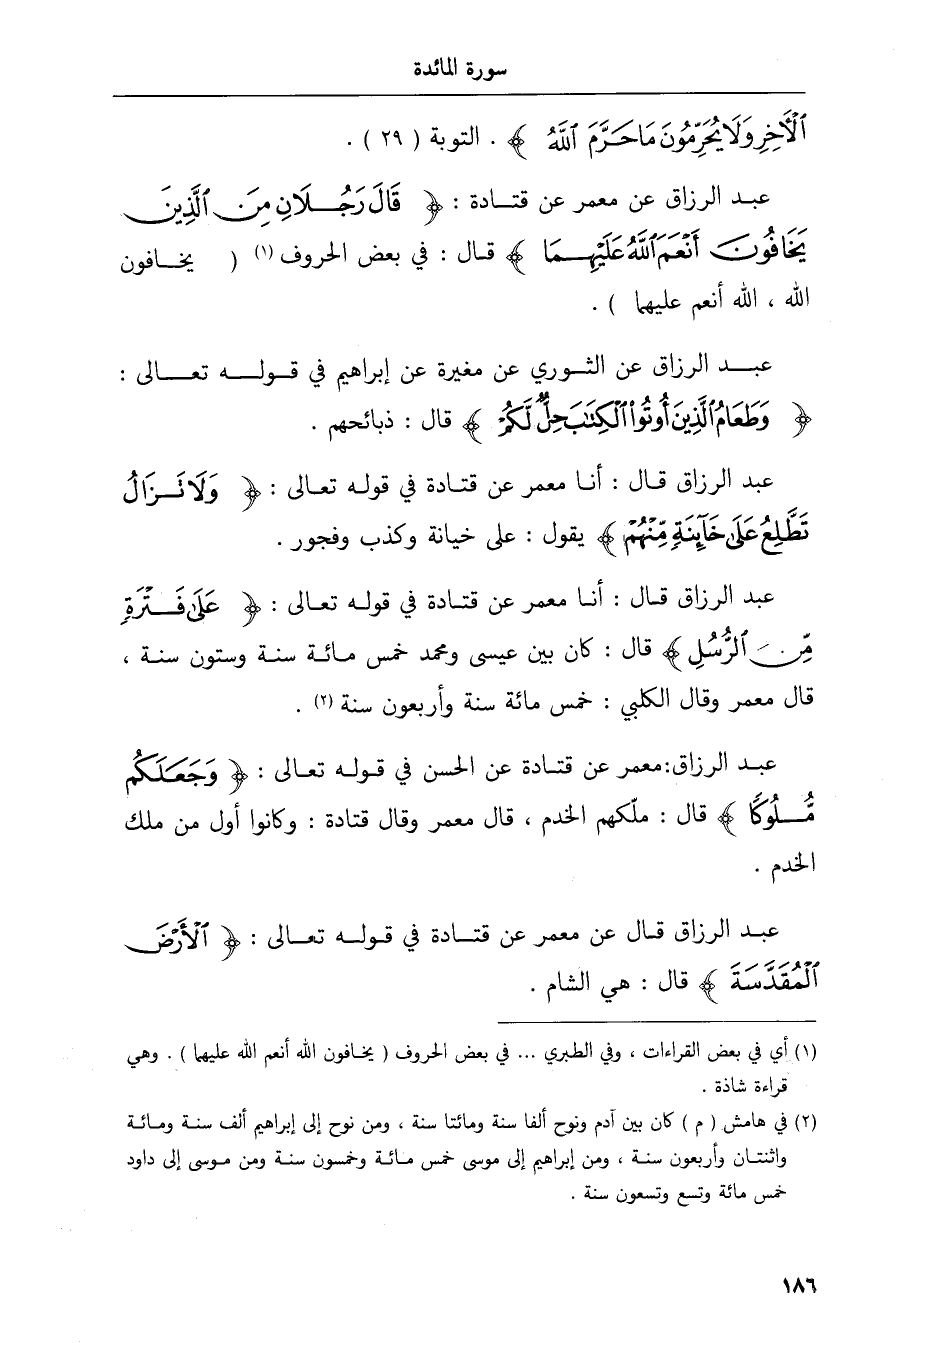 سورة المائدة
ٱلْأٓخِرِ وَلَا يُحَرِّمُونَ مَا حَرَّمَ ٱللَّهُ ﴾ . التوبة ( ٢٩ ) .
عبد الرزاق عن معمر عن قتادة : ﴿ قَالَ رَجُلَانِ مِنَ ٱلَّذِينَ
يَخَافُونَ أَنْعَمَ ٱللَّهُ عَلَيْهِمَا ﴾ قال : في بعض الحروف (١) ( يخافون
الله ، الله أنعم عليهما ) .
عبد الرزاق عن الثوري عن مغيرة عن إبراهيم في قوله تعالى :
﴿ وَطَعَامُ ٱلَّذِينَ أُوتُوا۟ ٱلْكِتَٰبَ حِلٌّ لَّكُمْ ﴾ قال : ذبائحهم .
عبد الرزاق قال : أنا معمر عن قتادة في قوله تعالى : ﴿ وَلَا نَزَالُ
تَطَّلِعُ عَلَىٰ خَآئِنَةٍ مِّنْهُمْ ﴾ يقول : على خيانة وكذب وفجور .
عبد الرزاق قال : أنا معمر عن قتادة في قوله تعالى : ﴿ عَلَىٰ فَتْرَةٍ
مِّنَ ٱلرُّسُلِ ﴾ قال : كان بين عيسى ومحمد خمس مائة سنة وستون سنة ،
قال معمر وقال الكلبي : خمس مائة سنة وأربعون سنة (٢) .
عبد الرزاق:معمر عن قتادة عن الحسن في قوله تعالى : ﴿ وَجَعَلَكُم
مُّلُوكًا ﴾ قال : ملّكهم الخدم ، قال معمر وقال قتادة : وكانوا أول من ملك
الخدم .
عبد الرزاق قال عن معمر عن قتادة في قوله تعالى : ﴿ ٱلْأَرْضَ
ٱلْمُقَدَّسَةَ ﴾ قال : هي الشام .
(١) أي في بعض القراءات ، وفي الطبري ... في بعض الحروف ( يخافون الله أنعم الله عليهما ) . وهي
قراءة شاذة .
(٢) في هامش ( م ) كان بين آدم ونوح ألفا سنة ومائتا سنة ، ومن نوح إلى إبراهيم ألف سنة ومائة
واثنتان وأربعون سنة ، ومن إبراهيم إلى موسى خمس مائة وخمسون سنة ومن موسى إلى داود
خمس مائة وتسع وتسعون سنة .
١٨٦